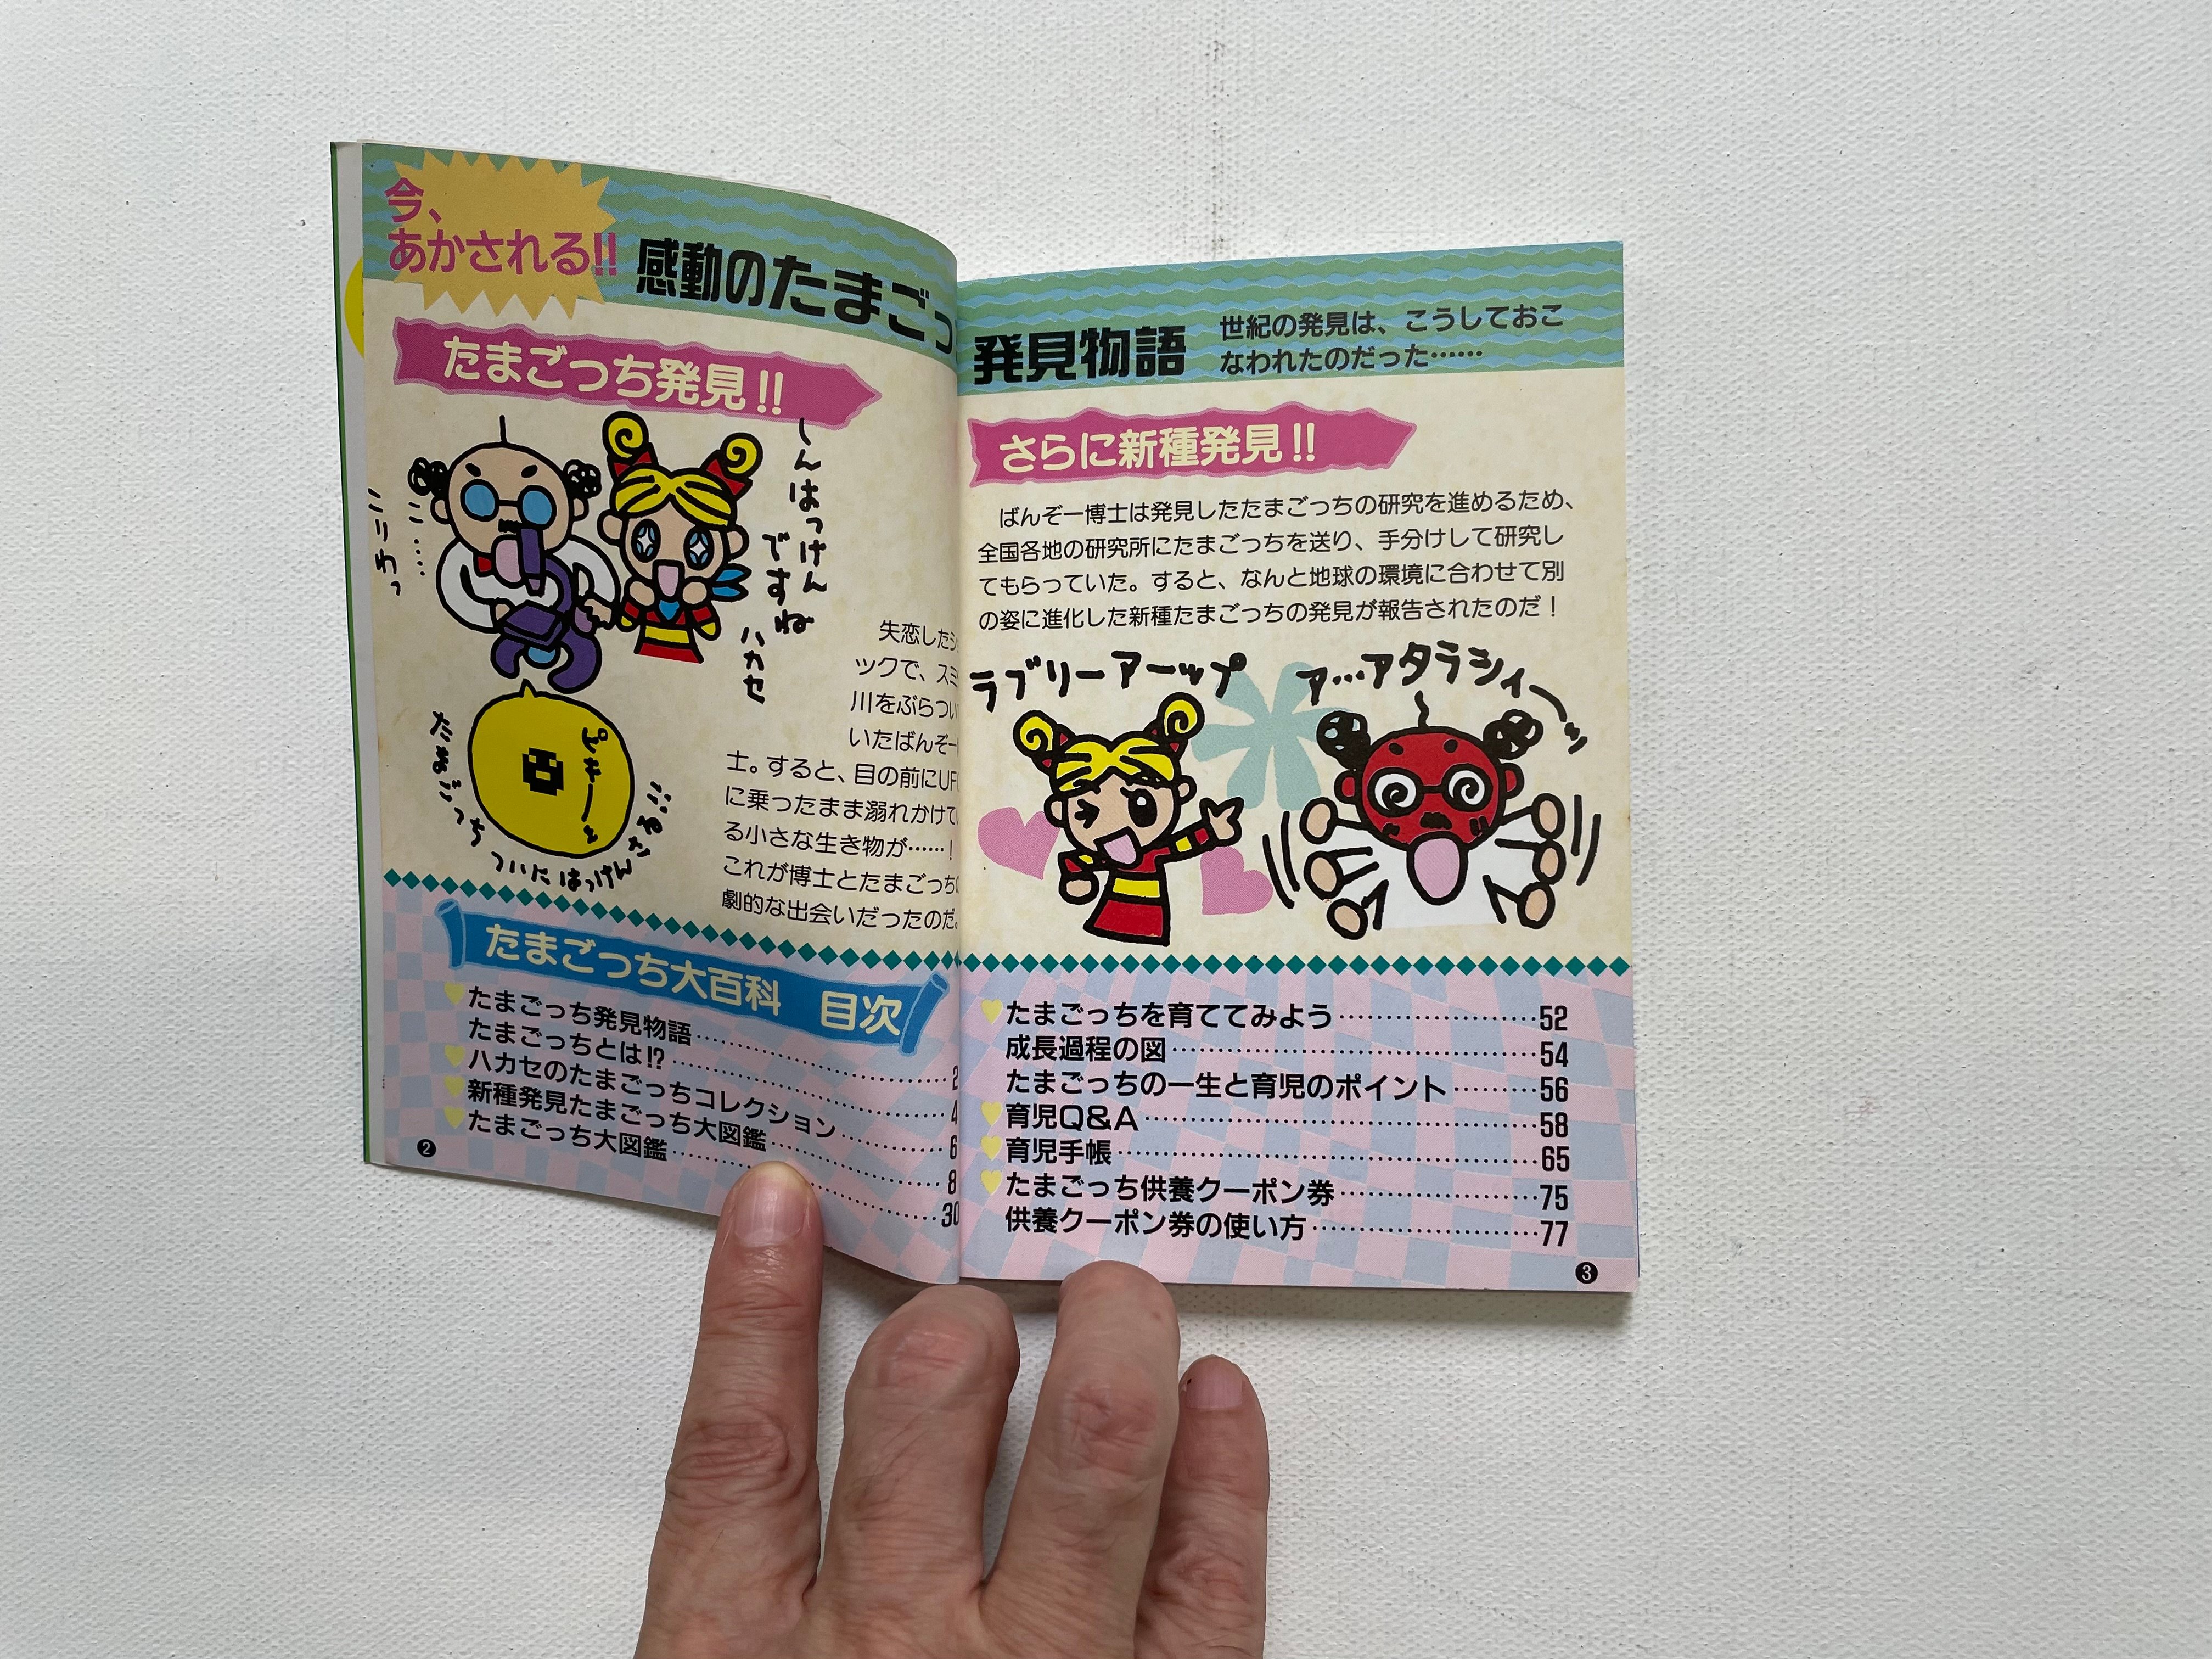 今、
あかされる!!
感動のたまごっ
たまごっち発見!!
しんはっけん
ですね
ハカセ
こりゃ
たまごっち ついに はっけん
ピキーッ
失恋した
ックで、スミ
川をぶらつい
いたばんぞー
士。すると、目の前にUF
に乗ったまま溺れかけて
る小さな生き物が……!
これが博士とたまごっち
劇的な出会いだったのだ。
たまごっち大百科 目次
たまごっち発見物語…………2
たまごっちとは!?…………4
ハカセのたまごっちコレクション…………6
新種発見たまごっち大図鑑…………8
たまごっち大図鑑…………30
2
発見物語
世紀の発見は、こうしておこ
なわれたのだった……
さらに新種発見!!
ばんぞー博士は発見したたまごっちの研究を進めるため、
全国各地の研究所にたまごっちを送り、手分けして研究し
てもらっていた。すると、なんと地球の環境に合わせて別
の姿に進化した新種たまごっちの発見が報告されたのだ!
ラブリーアーップ
ア…アタラシィーッ
たまごっちを育ててみよう…………52
成長過程の図…………54
たまごっちの一生と育児のポイント…………56
育児Q&A…………58
育児手帳…………65
たまごっち供養クーポン券…………75
供養クーポン券の使い方…………77
3